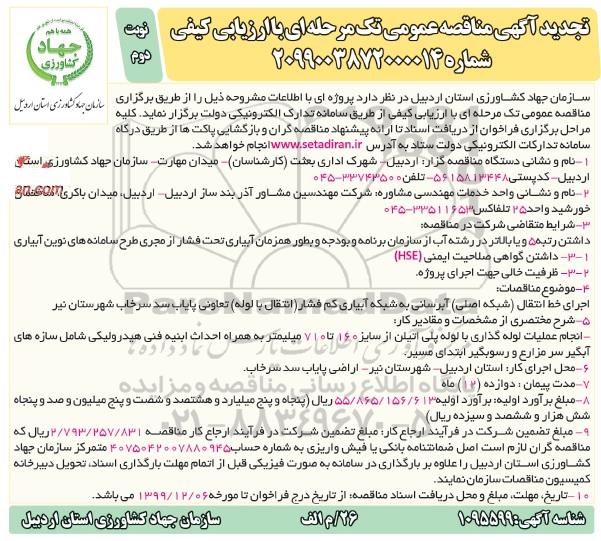 تجدید آگهی مناقصه عمومی تک مرحله ای با ارزیابی کیفی
شماره ۲۰۹۹۰۰۳۸۷۲۰۰۰۰۱۴
نوبت
دوم
همه با هم
جهاد
کشاورزی
سازمان جهاد کشاورزی استان اردبیل
سازمان جهاد کشاورزی استان اردبیل در نظر دارد پروژه ای با اطلاعات مشروحه ذیل را از طریق برگزاری
مناقصه عمومی تک مرحله ای با ارزیابی کیفی از طریق سامانه تدارک الکترونیکی دولت برگزار نماید. کلیه
مراحل برگزاری فراخوان از دریافت اسناد تا ارائه پیشنهاد مناقصه گران و بازگشایی پاکت ها از طریق درگاه
سامانه تدارکات الکترونیکی دولت ستاد به آدرس www.setadiran.ir انجام خواهد شد.
۱-نام و نشانی دستگاه مناقصه گزار: اردبیل- شهرک اداری بعثت (کارشناسان)- میدان مهارت- سازمان جهاد کشاورزی استان
اردبیل-کدپستی۵۶۱۵۸۱۳۴۴۸- تلفن۳۳۷۴۳۵۰۰-۰۴۵
۲-نام و نشانی واحد خدمات مهندسی مشاوره: شرکت مهندسین مشاور آذر بند ساز اردبیل- اردبیل، میدان باکری، ساختمان
خورشید واحد۲۵ تلفاکس۳۳۵۱۱۶۵۳-۰۴۵
۳-شرایط متقاضی شرکت در مناقصه:
داشتن رتبه۵ و یا بالاتر در رشته آب از سازمان برنامه و بودجه و بطور همزمان آبیاری تحت فشار از مجری طرح سامانه های نوین آبیاری
۳-۱- داشتن گواهی صلاحیت ایمنی (HSE)
۳-۲- ظرفیت خالی جهت اجرای پروژه.
۴-موضوع مناقصات:
اجرای خط انتقال (شبکه اصلی) آبرسانی به شبکه آبیاری کم فشار(انتقال با لوله) تعاونی پایاب سد سرخاب شهرستان نیر
۵-شرح مختصری از مشخصات و مقادیر کار:
-انجام عملیات لوله گذاری با لوله پلی اتیلن از سایز۱۶۰ تا۷۱۰ میلیمتر به همراه احداث ابنیه فنی هیدرولیکی شامل سازه های
آبگیر سر مزارع و رسوبگیر ابتدای مسیر.
۶-محل اجرای کار: استان اردبیل- شهرستان نیر- اراضی پایاب سد سرخاب.
۷-مدت پیمان : دوازده (۱۲) ماه
۸-مبلغ برآورد اولیه: برآورد اولیه۵۵/۸۶۵/۱۵۶/۶۱۳ ریال (پنجاه و پنج میلیارد و هشتصد و شصت و پنج میلیون و صد و پنجاه
شش هزار و ششصد و سیزده ریال)
۹- مبلغ تضمین شرکت در فرآیند ارجاع کار: مبلغ تضمین شرکت در فرآیند ارجاع کار مناقصه ۲/۷۹۳/۲۵۷/۸۳۱ریال که
مناقصه گران لازم است اصل ضمانتنامه بانکی یا فیش واریزی به شماره حساب۴۰۷۵۰۴۲۰۰۷۸۸۰۹۴۵ متمرکز سازمان جهاد
کشاورزی استان اردبیل را علاوه بر بارگذاری در سامانه به صورت فیزیکی قبل از اتمام مهلت بارگذاری اسناد، تحویل دبیرخانه
کمیسیون مناقصات سازمان نمایند.
۱۰-تاریخ، مهلت، مبلغ و محل دریافت اسناد مناقصه: از تاریخ درج فراخوان تا مورخه۱۳۹۹/۱۲/۰۶ می باشد.
شناسه آگهی:۱۰۹۵۵۹۹ ۲۶/م الف سازمان جهاد کشاورزی استان اردبیل